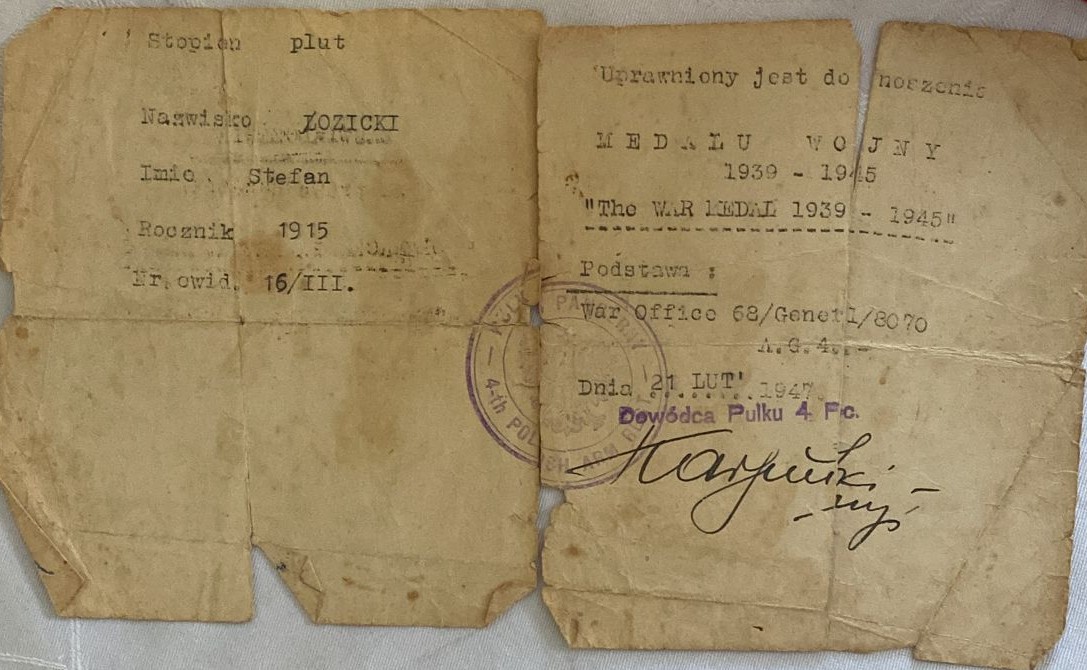 Stopien plut
Nazwisko ŁOZICKI
Imie Stefan
Rocznik 1915
Nr. ewid. 16/III.
Uprawniony jest do noszenia
MEDALU WOJNY
1939 - 1945
"The WAR MEDAL 1939 - 1945"
Podstawa :
War Office 68/Generl/8070
A.G.4..-
Dnia 21 LUT' 1947.
Dowódca Pułku 4 Pc.
4-th POLISH ARM REGT
mjr